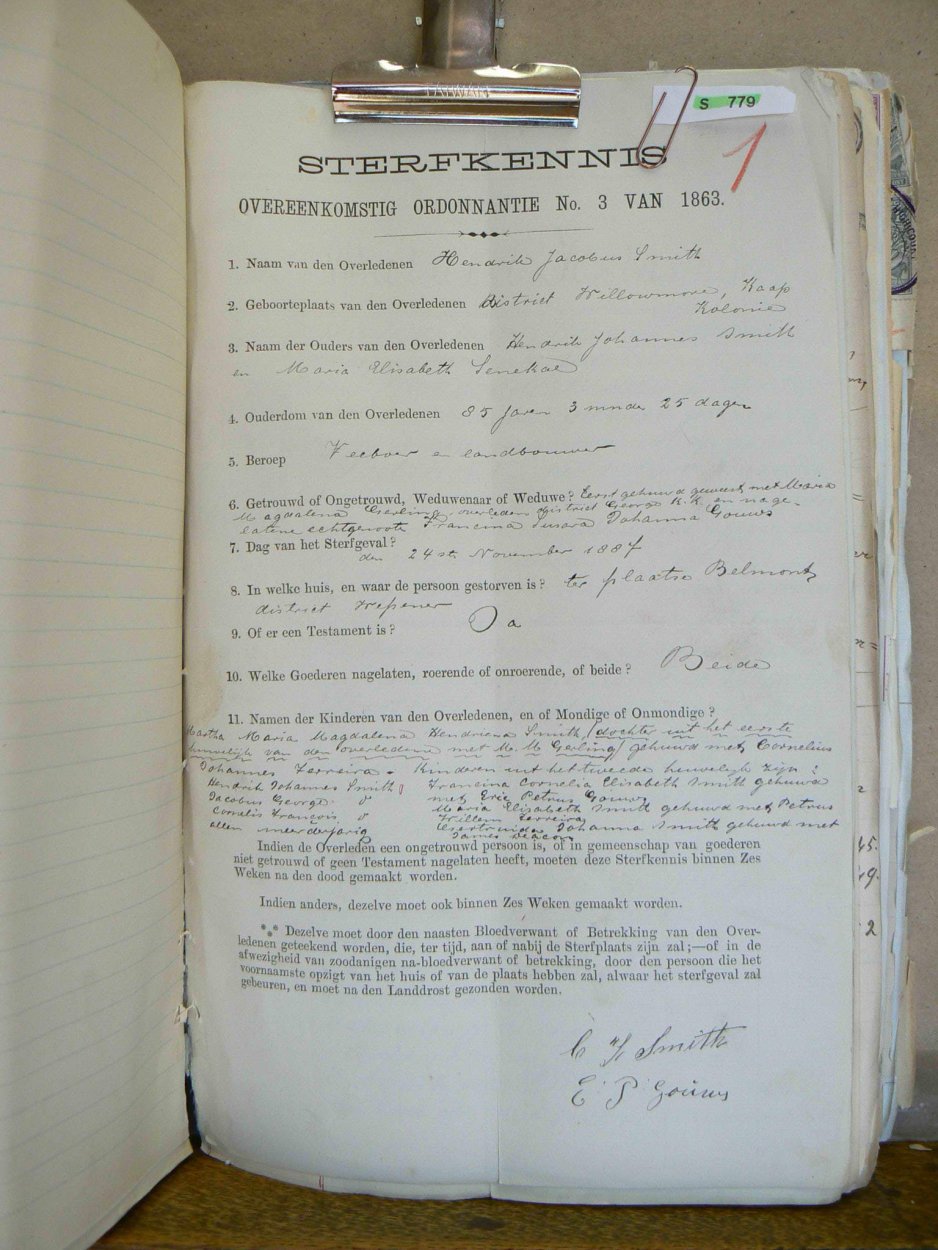 TAIWAN
S 779
1
STERFKENNIS
OVEREENKOMSTIG ORDONNANTIE No. 3 VAN 1863.
1. Naam van den Overledenen Hendrik Jacobus Smith
2. Geboorteplaats van den Overledenen district Willowmore, Kaap
Kolonie
3. Naam der Ouders van den Overledenen Hendrik Johannes Smith
en Maria Elisabeth Senekae
4. Ouderdom van den Overledenen 85 jaren 3 mnde 25 dagen
5. Beroep Veeboer en landbouwer
6. Getrouwd of Ongetrouwd, Weduwenaar of Weduwe? Eerst gehuwd geweest met Maria
Magdalena Gerling, overleden district George K.K. en nage-
latene echtgenoote Francina Susara Johanna Gouws
7. Dag van het Sterfgeval?
den 24ste November 1887
8. In welke huis, en waar de persoon gestorven is? ter plaatse Belmont,
district Wepener
9. Of er een Testament is? Ja
10. Welke Goederen nagelaten, roerende of onroerende, of beide? Beide
11. Namen der Kinderen van den Overledenen, en of Mondige of Onmondige?
Martha Maria Magdalena Hendriena Smith, (dochter uit het eerste
huwelijk van den overledene met M. M Gerling) gehuwd met Cornelius
Johannes Ferreira. Kinderen uit het tweede huwelijk zijn:
Hendrik Johannes Smith Francina Cornelia Elisabeth Smith gehuwd
met Eric Petrus Gouws
Jacobus George do Maria Elisabeth Smith gehuwd met Petrus
Willem Ferreira
Cornelis Francois do Geertruida Johanna Smith gehuwd met
allen meerderjarig James Deacon
Indien de Overleden een ongetrouwd persoon is, of in gemeenschap van goederen
niet getrouwd of geen Testament nagelaten heeft, moeten deze Sterfkennis binnen Zes
Weken na den dood gemaakt worden.
Indien anders, dezelve moet ook binnen Zes Weken gemaakt worden.
*** Dezelve moet door den naasten Bloedverwant of Betrekking van den Over-
ledenen geteekend worden, die, ter tijd, aan of nabij de Sterfplaats zijn zal;—of in de
afwezigheid van zoodanigen na-bloedverwant of betrekking, door den persoon die het
voornaamste opzigt van het huis of van de plaats hebben zal, alwaar het sterfgeval zal
gebeuren, en moet na den Landdrost gezonden worden.
C F Smith
E P Gouws